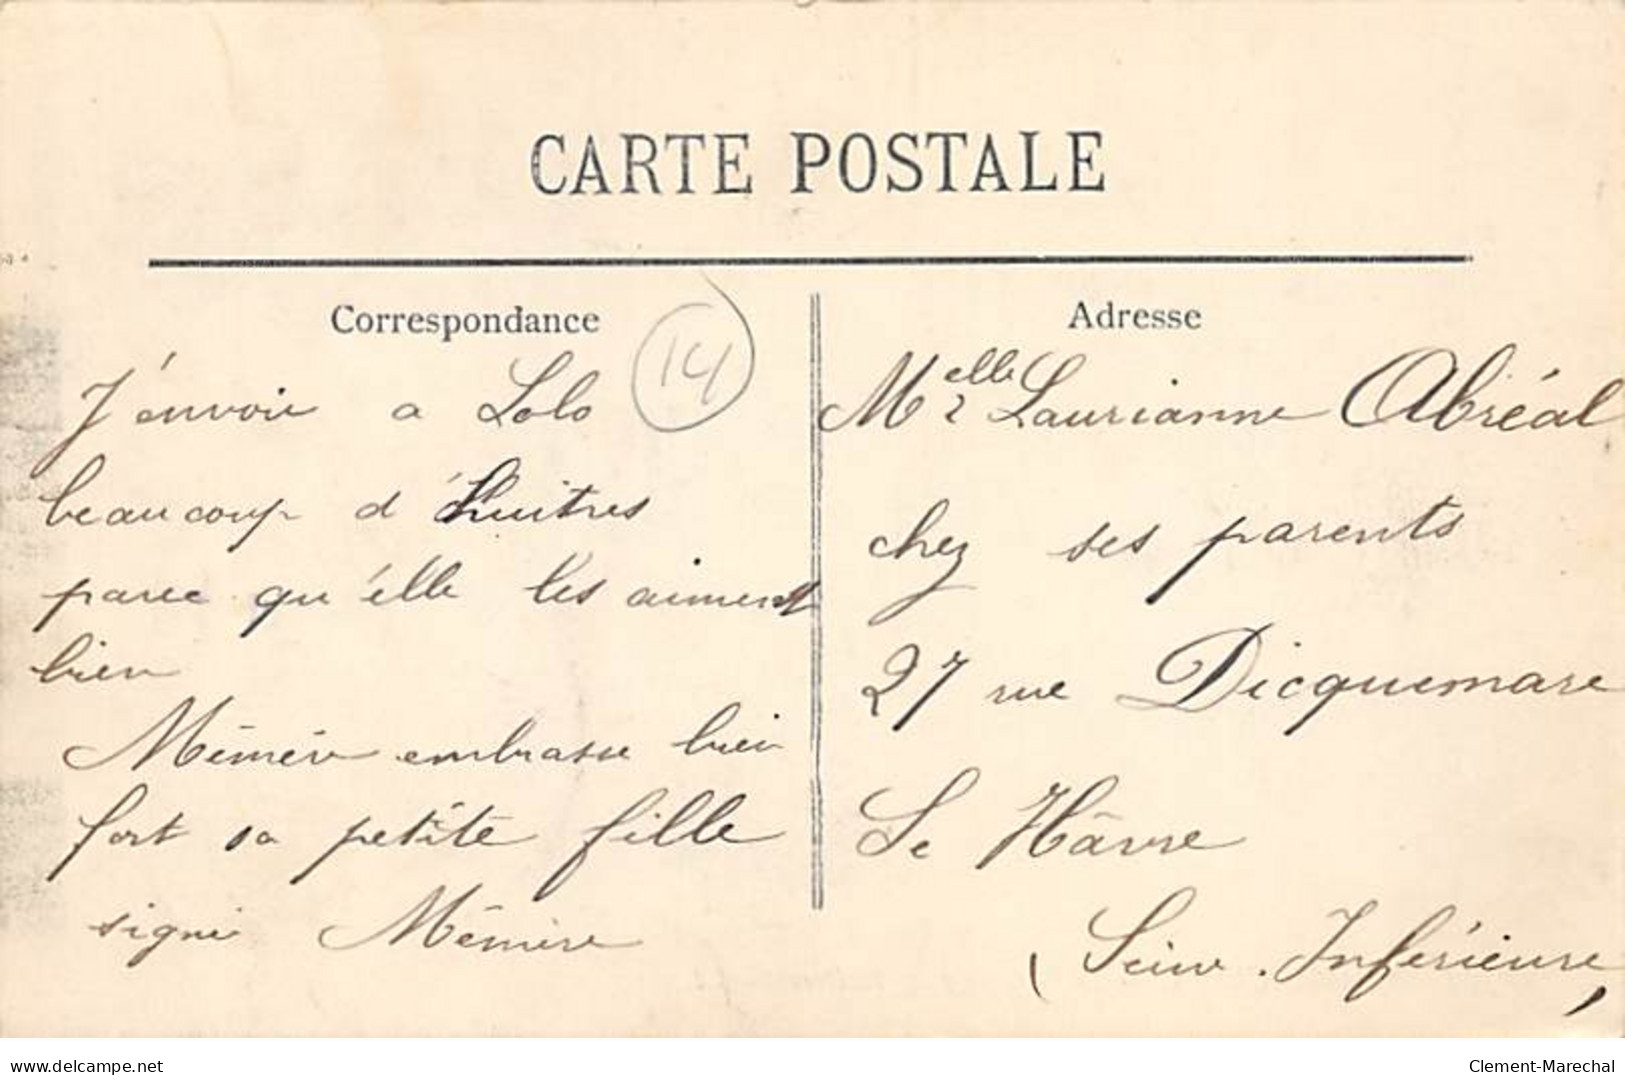 CARTE POSTALE
Correspondance
14
J'envoie a Lolo
beaucoup d'huitres
parce qu'elle les aiment
bien
Mémère embrasse bien
fort sa petite fille
signé Mémère
Adresse
Melle Laurianne Abréal
chez ses parents
27 rue Dicquemare
Le Hâvre
(Seine Inférieure)
www.delcampe.net
Clement-Marechal